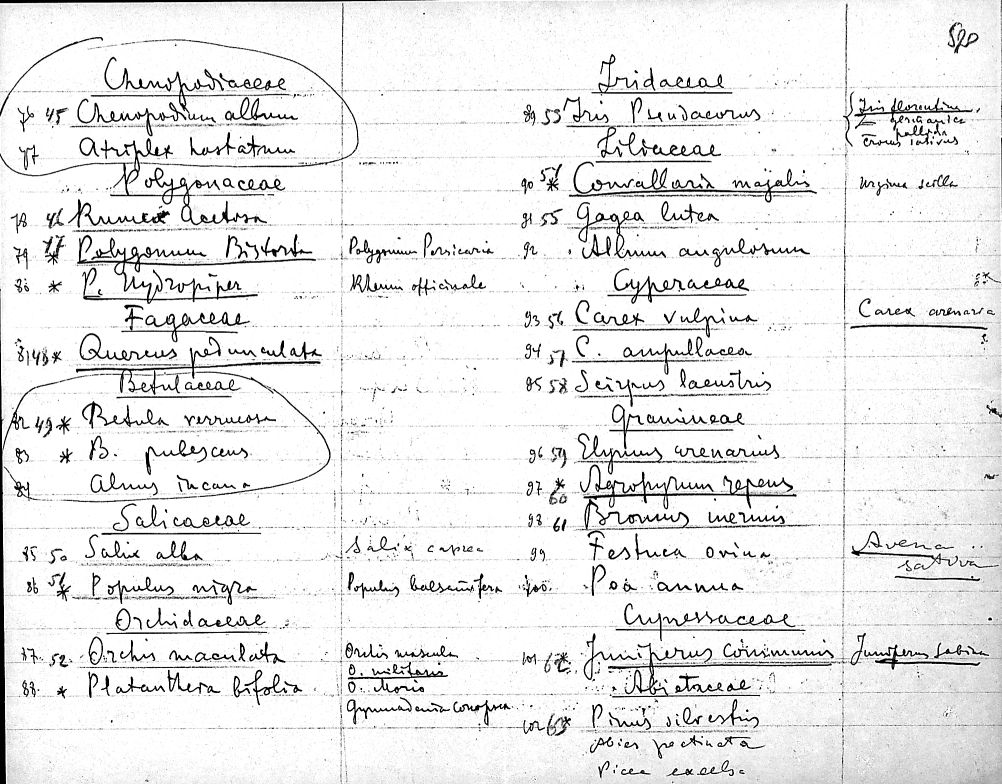 Chenopodiaceae
76 45 Chenopodium album
77 Atriplex hastatum
Polygonaceae
78 46 Rumex Acetosa
79 47 * Polygonum Bistorta Polygonum Persicaria
80 * P. Hydropiper Rheum officinale
Fagaceae
81 48 * Quercus pedunculata
Betulaceae
82 49 * Betula verrucosa
83 * B. pubescens
84 Alnus incana
Salicaceae
85 50 Salix alba Salix caprea
86 51 * Populus nigra Populus balsamifera
Orchidaceae
87 52. Orchis maculata Orchis mascula
O. militaris
88. * Platanthera bifolia O. Morio
Gymnadenia conopsea
Iridaceae
89 53 Iris Pseudacorus Iris florentina,
germanica
pallida
Crocus sativus
Liliaceae
90 54 * Convallaria majalis Urginea scilla
91 55 Gagea lutea
92. Allium angulosum
Cyperaceae
93 56 Carex vulpina Carex arenaria
94 57 C. ampullacea
95 58 Scirpus lacustris
Gramineae
96 59 Elymus arenarius
97 * 60 Agropyrum repens
98 61 Bromus inermis
99 Festuca ovina Avena sativa
100. Poa annua
Cupressaceae
101 62 * Juniperus communis Juniperus Sabina
Abietaceae
102 63 * Pinus silvestris
Abies pectinata
Picea excelsa